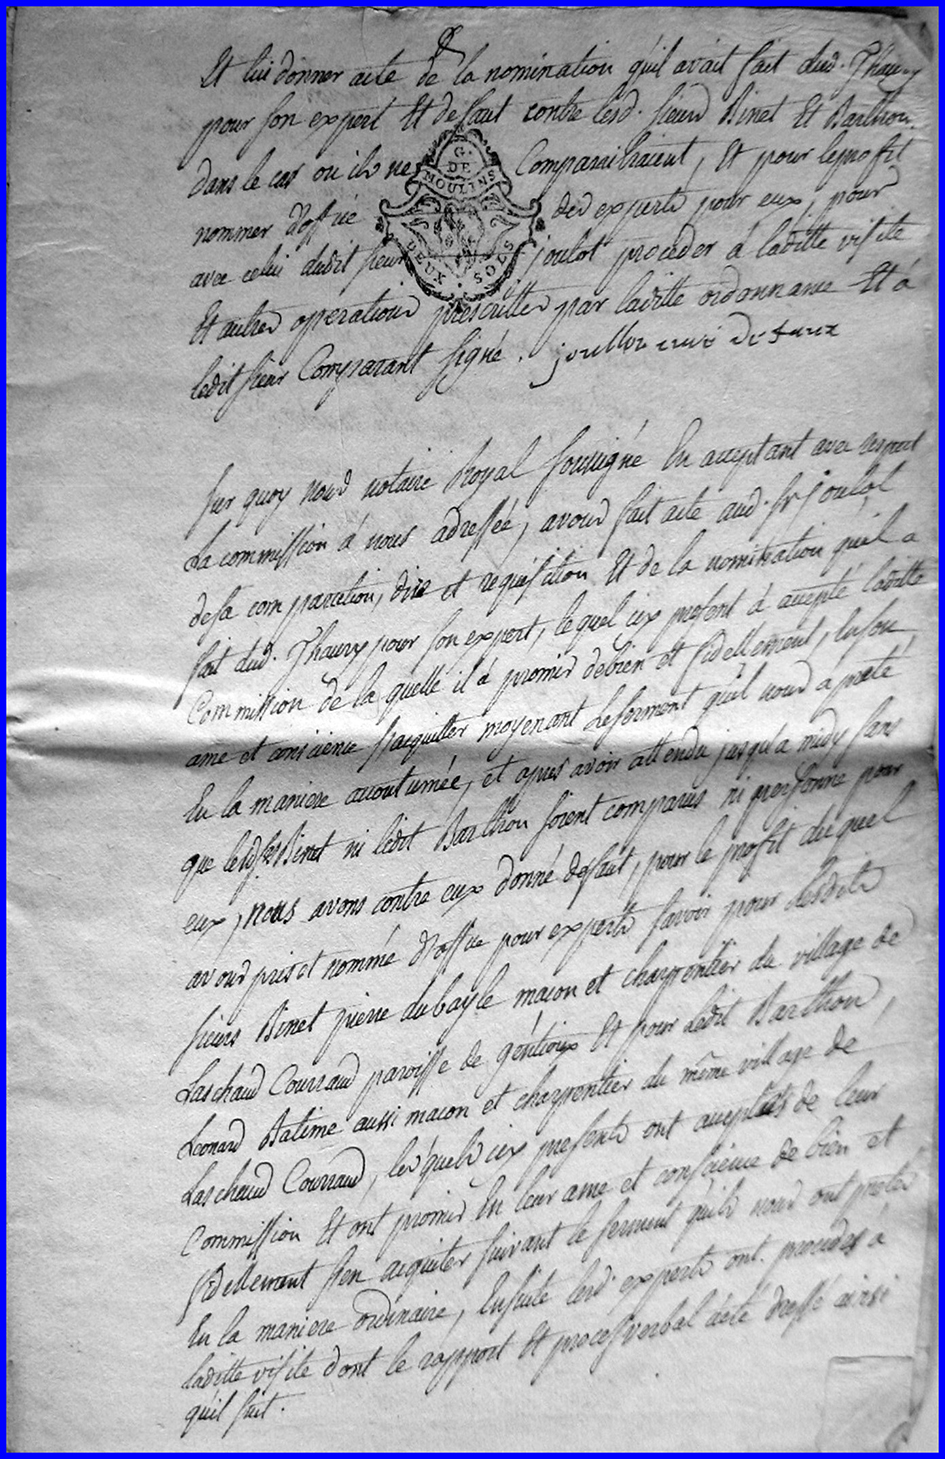 Et lui donner acte de la nomination qu'il avait fait dud. Thaury
pour son expert Et defaut contre lesd. sieurs Binet Et Barthon
dans le cas ou ils ne Comparaitraient, Et pour le profit
nommer d'office des experts pour eux, pour
avec celui dudit sieur joulot proceder á laditte visite
Et autres operations prescrittes par laditte ordonnance Et á
ledit sieur Comparant signé. joullot curé de faux
G. DE MOULINS
DEUX SOLS
sur quoy nous notaire Royal soussigné En acceptant avec respect
La commission á nous adressée, avons fait acte aud. sr joulot
de sa comparution, dire et requisition Et de la nomination qu'il a
fait dud. Thaury pour son expert, lequel icy present á accepté laditte
Commission de la quelle il á promis de bien et fidellement, En son
ame et conscience s'acquitter moyenant le serment qu'il nous a preté
En la maniere acoutumée, et apres avoir attendu jusqu'a midy sans
que lesd. srs Binet ni ledit Barthon soient comparus ni personne pour
eux, nous avons contre eux donné defaut, pour le profit du quel
avons pris et nommé d'office pour experts savoir pour lesdits
sieurs Binet pierre dubayle macon et charpentier du village de
Laschaud Courraud paroisse de gentioux Et pour ledit Barthon,
Leonard Batime aussi macon et charpentier du même village de
Laschaud Courraud, les quels icy presents ont acceptés de leur
Commission Et ont promis En leur ame et conscience de bien et
fidellement s'en acquiter suivant le serment qu'ils nous ont preter
En la maniere ordinaire, Ensuite lesd. experts ont procedés á
laditte visite dont le rapport Et procesverbal a été dressé ainsi
qu'il suit.